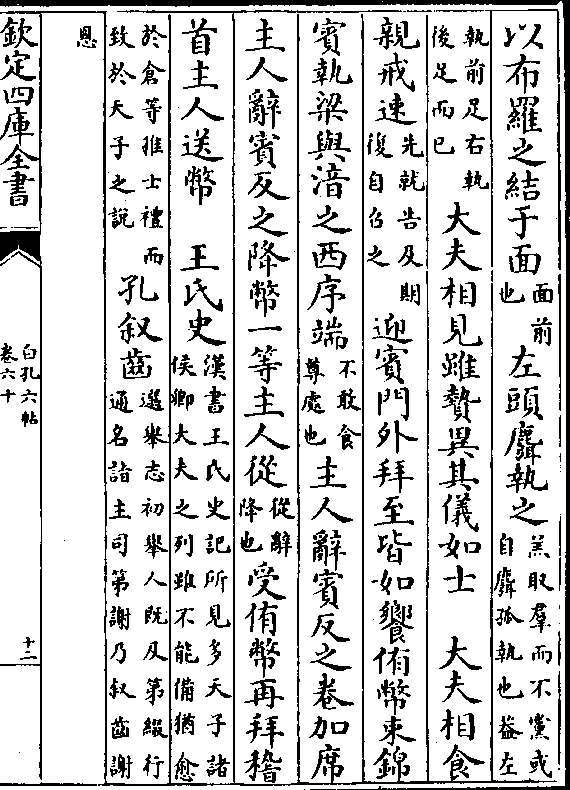 以布羅之結于面面前也左頭麛執之羔取羣而不黨或自麛孤執也益左
執前足右執後足而已 大夫相見雖贄異其儀如士 大夫相食
親戒速先就告及期後自召之迎賓門外拜至皆如饗侑幣束錦
賓執梁與湆之西序端不敢食尊處也主人辭賓反之卷加席
主人辭賓反之降幣一等主人從從辭降也受侑幣再拜稽
首主人送幣 王氏史漢書王氏史記所見多天子諸侯卿大夫之列雖不能備猶愈
於倉等推士禮而致於天子之說 孔叙齒選舉志初舉人既及第綴行通名詣主司第謝乃叙齒謝
恩
欽定四庫全書
白孔六帖
卷六十
十二